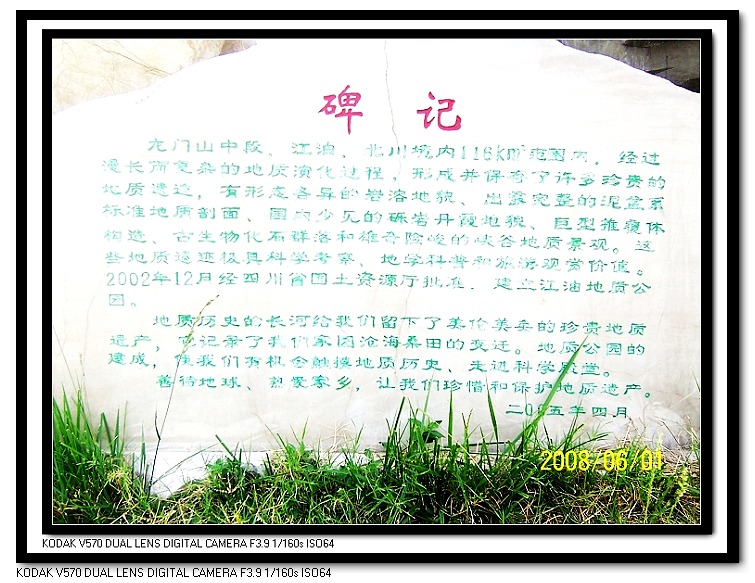 碑记
龙门山中段、江油、北川境内116km²范围内,经过
漫长而复杂的地质演化过程,形成并保存了许多珍贵的
地质遗迹,有形态各异的岩溶地貌、出露完整的泥盆系
标准地质剖面、国内少见的砾岩丹霞地貌、巨型推覆体
构造、古生物化石群落和雄奇险峻的峡谷地质景观。这
些地质遗迹极具科学考察、地学科普和旅游观赏价值。
2002年12月经四川省国土资源厅批准,建立江油地质公
园。
地质历史的长河给我们留下了美伦美奂的珍贵地质
遗产,它记录了我们家园沧海桑田的变迁。地质公园的
建成,使我们有机会触摸地质历史、走进科学殿堂。
善待地球、热爱家乡,让我们珍惜和保护地质遗产。
二00五年四月
2008/06/01
KODAK V570 DUAL LENS DIGITAL CAMERA F3.9 1/160s ISO64
KODAK V570 DUAL LENS DIGITAL CAMERA F3.9 1/160s ISO64